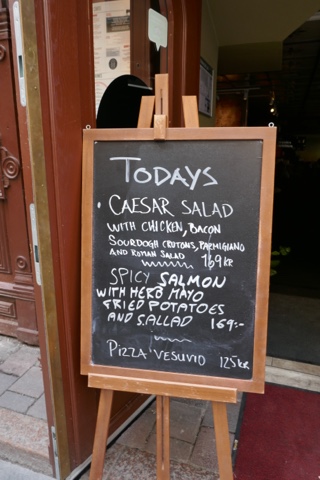 TODAYS
• CAESAR SALAD
WITH CHICKEN, BACON
SOURDOGH CRUTONS, PARMIGIANO
AND ROMAN SALAD 169 KR
SPICY SALMON
WITH HERB MAYO
FRIED POTATOES
AND SALLAD 169:-
PIZZA VESUVIO 125 KR